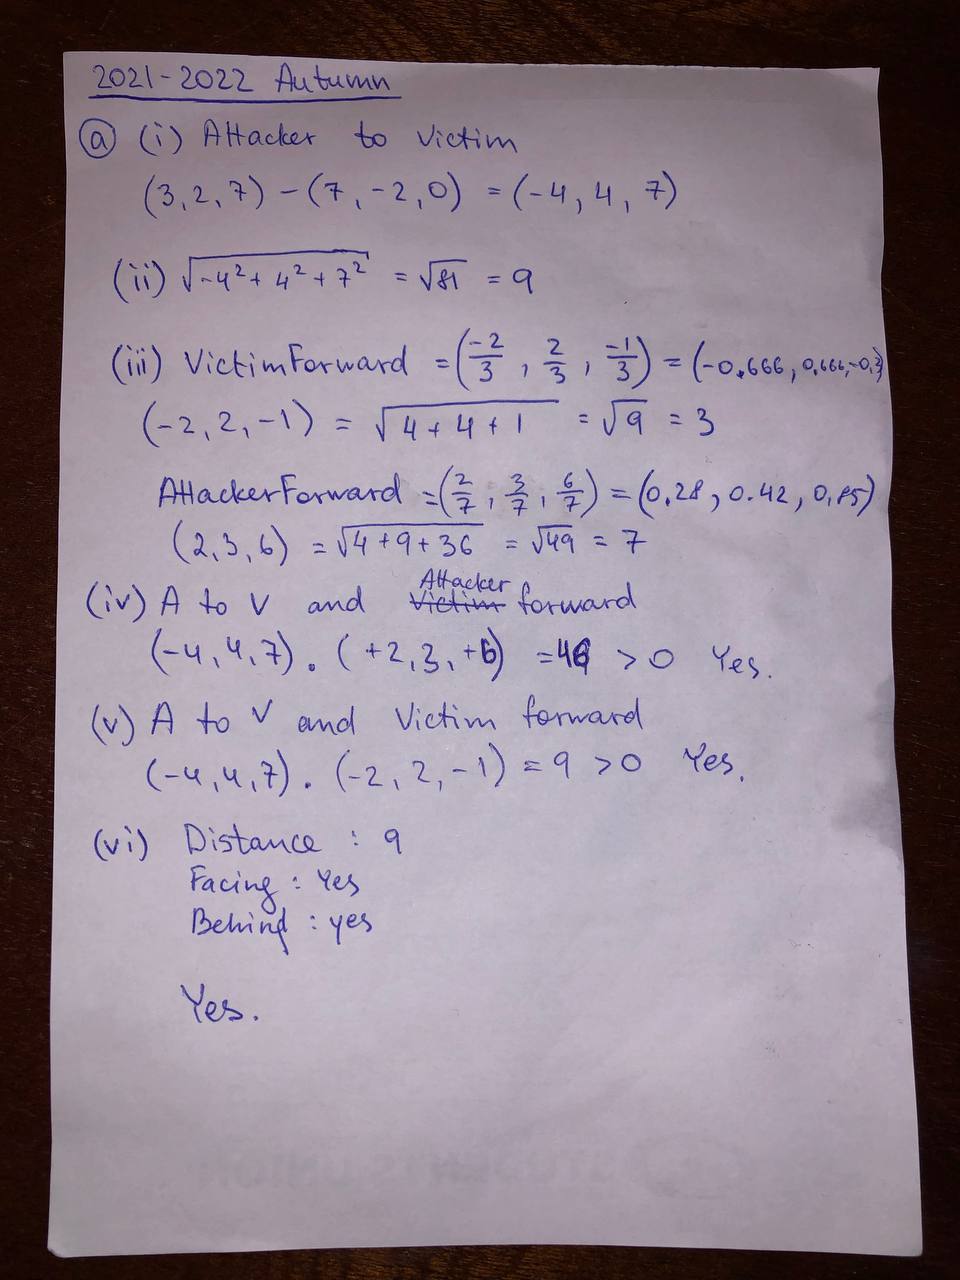 2021-2022 Autumn
ⓐ (i) Attacker to Victim
(3,2,7) - (7,-2,0) = (-4,4,7)
(ii) √-4²+4²+7² = √81 = 9
(iii) VictimForward = (-2/3, 2/3, -1/3) = (-0.666, 0,666,-0,3)
(-2,2,-1) = √4+4+1 = √9 = 3
AttackerForward = (2/7, 3/7, 6/7) = (0,28, 0.42, 0,85)
(2,3,6) = √4+9+36 = √49 = 7
(iv) A to V and Victim Attacker forward
(-4,4,7) . (+2,3,+6) = 46 >0 Yes.
(v) A to V and Victim forward
(-4,4,7) . (-2,2,-1) = 9 >0 Yes.
(vi) Distance : 9
Facing : Yes
Behind : yes
Yes.
STUDENTS UNION